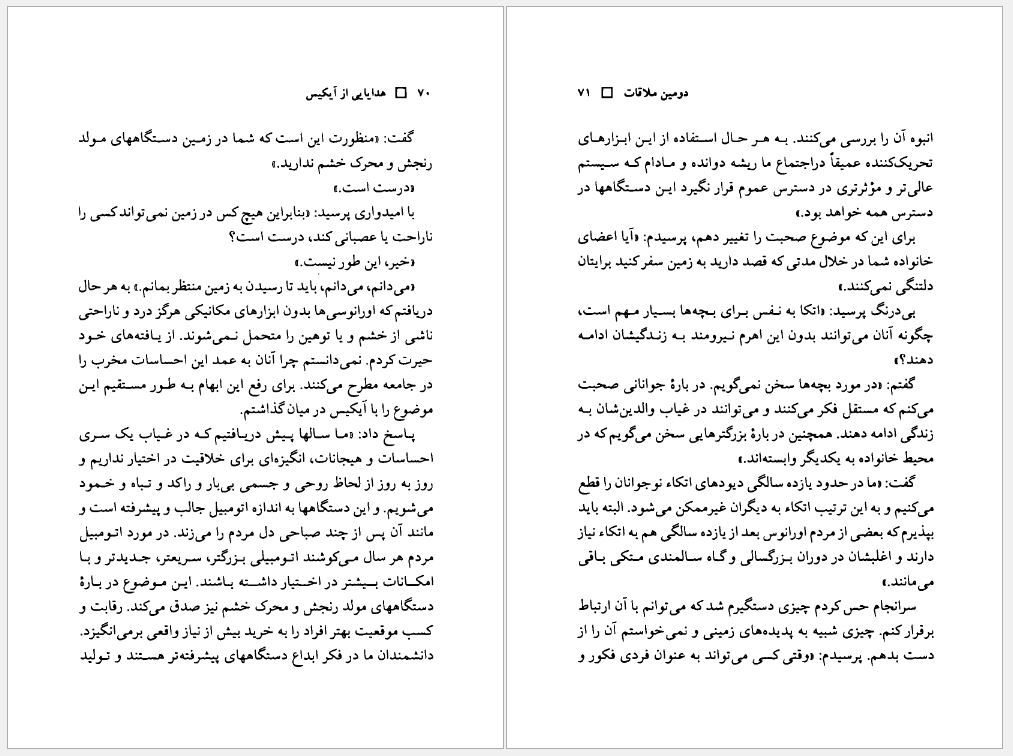 ۷۰ □ هدایایی از آیکیس
گفت: «منظورت این است که شما در زمین دستگاههای مولد
رنجش و محرک خشم ندارید.»
«درست است.»
با امیدواری پرسید: «بنابراین هیچ‌کس در زمین نمی‌تواند کسی را
ناراحت یا عصبانی کند، درست است؟
«خیر، این طور نیست.»
«می‌دانم، می‌دانم، باید تا رسیدن به زمین منتظر بمانم.» به هر حال
دریافتم که اورانوسی‌ها بدون ابزارهای مکانیکی هرگز درد و ناراحتی
ناشی از خشم و یا توهین را متحمل نمی‌شوند. از یافته‌های خود
حیرت کردم. نمی‌دانستم چرا آنان به عمد این احساسات مخرب را
در جامعه مطرح می‌کنند. برای رفع این ابهام به طور مستقیم این
موضوع را با آیکیس در میان گذاشتم.
پاسخ داد: «ما سالها پیش دریافتیم که در غیاب یک سری
احساسات و هیجانات، انگیزه‌ای برای خلاقیت در اختیار نداریم و
روز به روز از لحاظ روحی و جسمی بی‌بار و راکد و تباه و خمود
می‌شویم. و این دستگاهها به اندازه اتومبیل جالب و پیشرفته است و
مانند آن پس از چند صباحی دل مردم را می‌زند. در مورد اتومبیل
مردم هر سال می‌کوشند اتومبیلی بزرگتر، سریعتر، جدیدتر و با
امکانات بیشتر در اختیار داشته باشند. این موضوع در بارهٔ
دستگاههای مولد رنجش و محرک خشم نیز صدق می‌کند. رقابت و
کسب موقعیت بهتر افراد را به خرید بیش از نیاز واقعی برمی‌انگیزد.
دانشمندان ما در فکر ابداع دستگاههای پیشرفته‌تر هستند و تولید
دومین ملاقات □ ۷۱
انبوه آن را بررسی می‌کنند. به هر حال استفاده از این ابزارهای
تحریک‌کننده عمیقاً دراجتماع ما ریشه دوانده و مادام که سیستم
عالی‌تر و مؤثرتری در دسترس عموم قرار نگیرد این دستگاهها در
دسترس همه خواهد بود.»
برای این که موضوع صحبت را تغییر دهم، پرسیدم: «آیا اعضای
خانواده شما در خلال مدتی که قصد دارید به زمین سفر کنید برایتان
دلتنگی نمی‌کنند.»
بی‌درنگ پرسید: «اتکا به نفس برای بچه‌ها بسیار مهم است،
چگونه آنان می‌توانند بدون این اهرم نیرومند به زندگیشان ادامه
دهند؟»
گفتم: «در مورد بچه‌ها سخن نمی‌گویم. در بارهٔ جوانانی صحبت
می‌کنم که مستقل فکر می‌کنند و می‌توانند در غیاب والدین‌شان به
زندگی ادامه دهند. همچنین در بارهٔ بزرگترهایی سخن می‌گویم که در
محیط خانواده به یکدیگر وابسته‌اند.»
گفت: «ما در حدود یازده سالگی دیودهای اتکاء نوجوانان را قطع
می‌کنیم و به این ترتیب اتکاء به دیگران غیرممکن می‌شود. البته باید
بپذیرم که بعضی از مردم اورانوس بعد از یازده سالگی هم به اتکاء نیاز
دارند و اغلبشان در دوران بزرگسالی و گاه سالمندی متکی باقی
می‌مانند.»
سرانجام حس کردم چیزی دستگیرم شد که می‌توانم با آن ارتباط
برقرار کنم. چیزی شبیه به پدیده‌های زمینی و نمی‌خواستم آن را از
دست بدهم. پرسیدم: «وقتی کسی می‌تواند به عنوان فردی فکور و